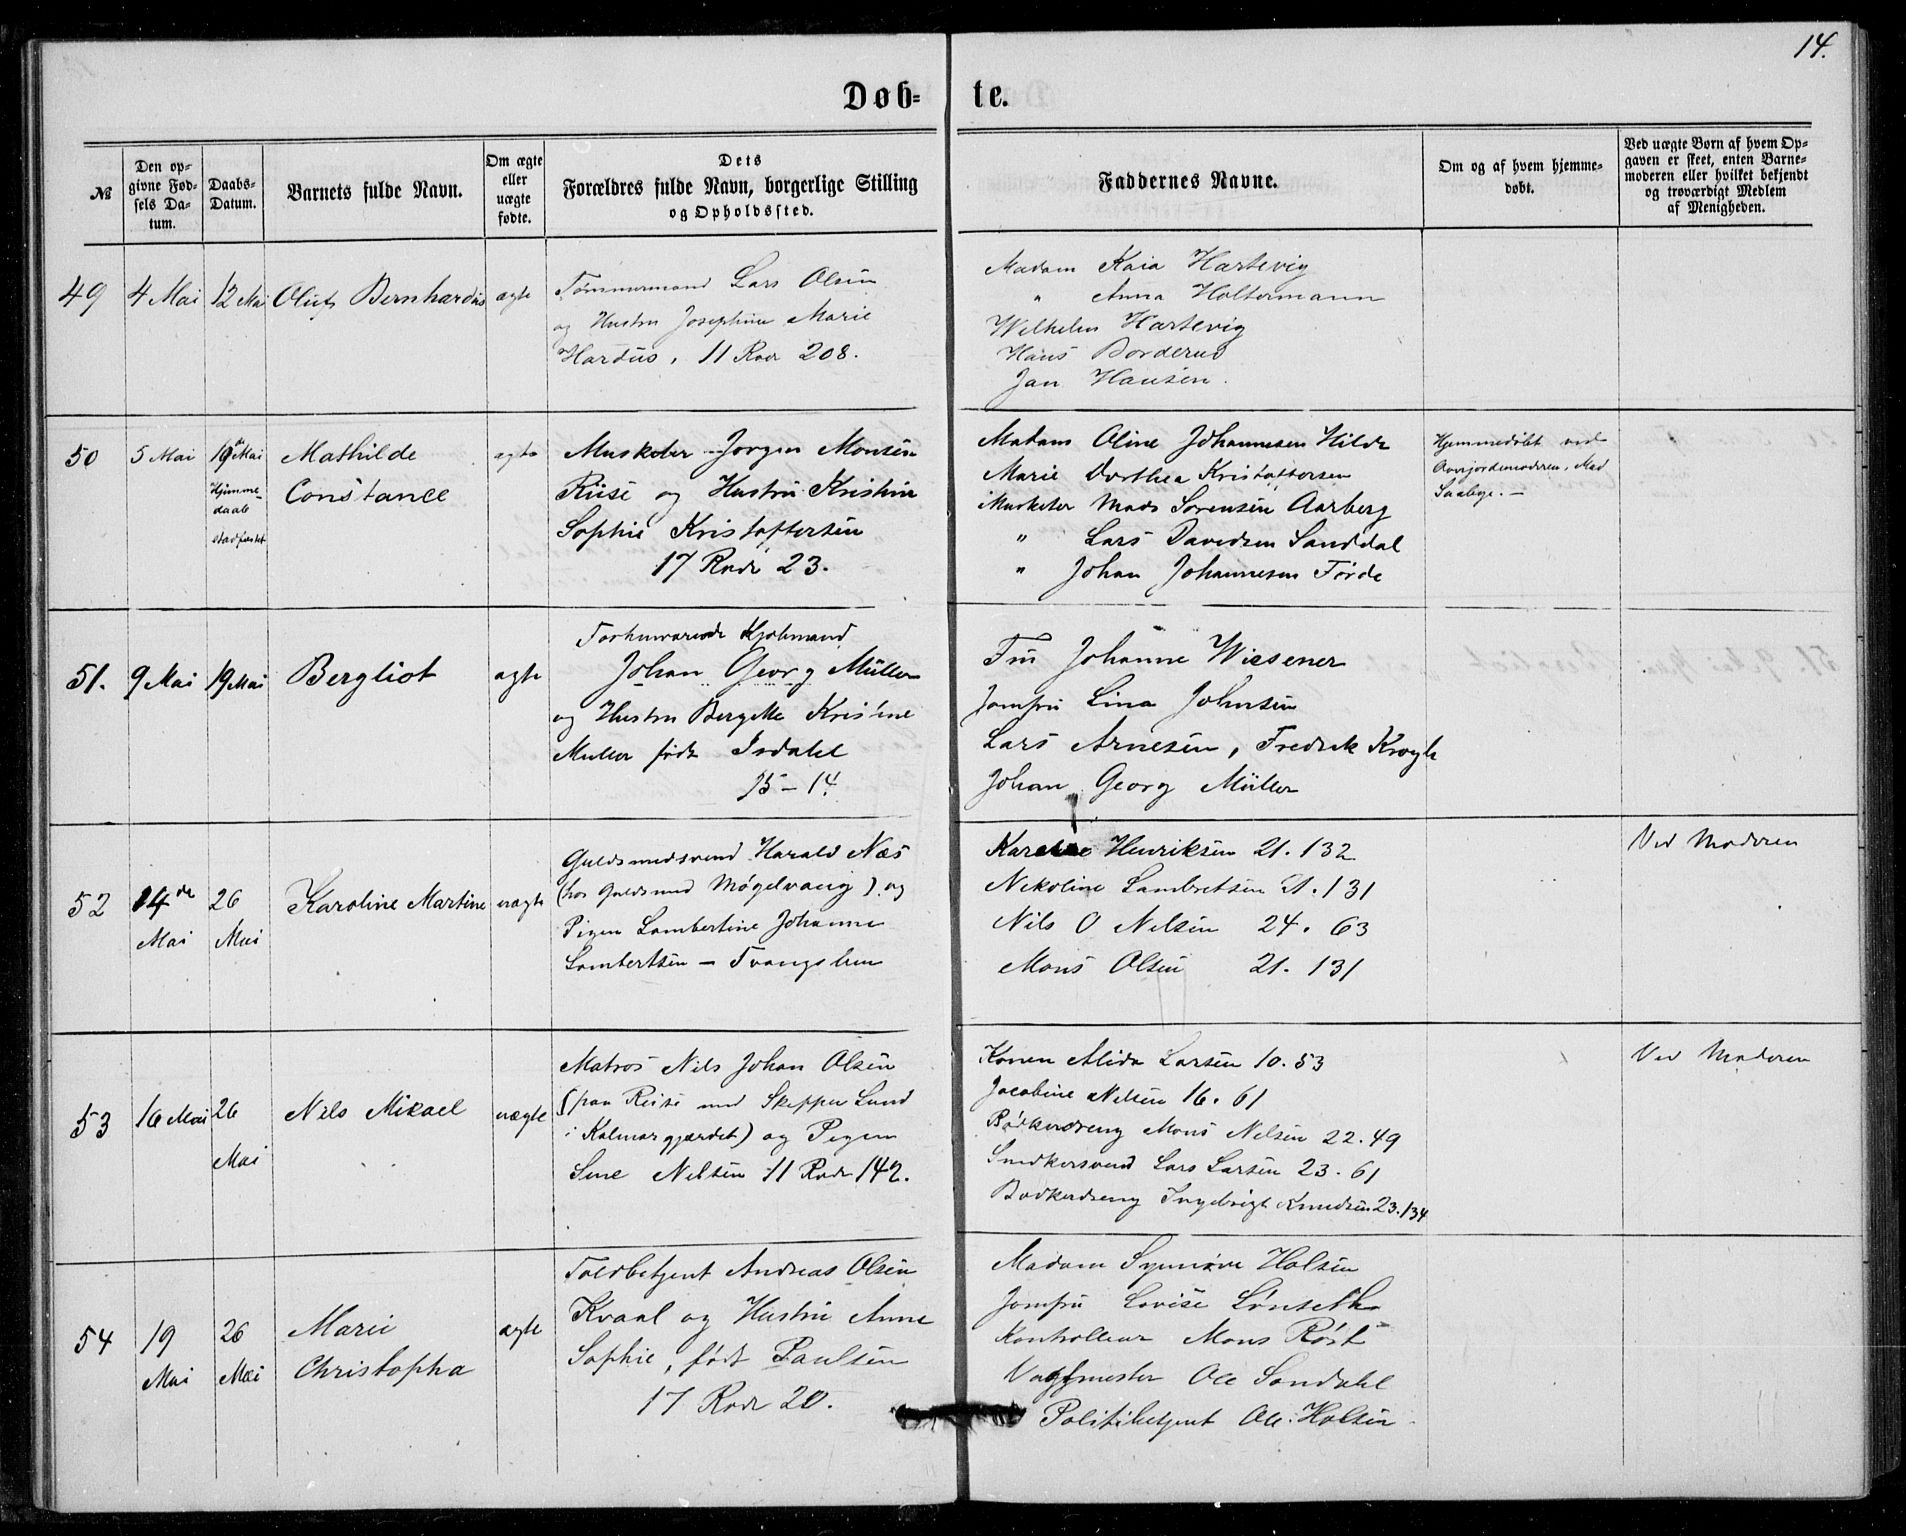 14.
Døb-te.
№
Den op-
givne Fød-
sels Da-
tum.
Daabs-
Datum.
Barnets fulde Navn.
Om ægte
eller
uægte
fødte.
Dets
Forældres fulde Navn, borgerlige Stilling
og Opholdssted.
Faddernes Navne.
Om og af hvem hjemme-
døbt.
Ved uægte Børn af hvem Op-
gaven er skeet, enten Barne-
moderen eller hvilket bekjendt
og troværdigt Medlem
af Menigheden.
49
4 Mai
12 Mai
Oluf Bernhardus
ægte
Tømmermand Lars Olsen
og Hustru Josephine Marie
Hardus, 11 Rode 208.
Madam Kaia Hartevig
" Anna Holtermann
Wilhelm Hartevig
Hans Borderud
Jan Hansen.
50
5 Mai
19de Mai
Hjemme-
daab
stadfæstet
Mathilde
Constance
ægte
Musketer Jørgen Monsen
Riise og Hustru Kristine
Sophie Kristoffersen
17 Rode 23.
Madam Oline Johannesen Hilde
Marie Dorthea Kristoffersen
Musketer Mads Sørensen Aarberg
" Lars Davidsen Sanddal
" Johan Johannesen Førde
Hjemmedøbt ved
Overjordemoderen, Mad
51.
9 Mai
19 Mai
Bergliot
ægte
Forhenværende Kjøbmand
Johan Georg Müller
og Hustru Bergitte Kristine
Müller født Isdahl
15 - 14.
Fru Johanne Wiesener
Jomfru Lina Johnsen
Lars Arnesen, Fredrik Krogh
Johan Georg Müller
52
14de
Mai
26
Mai
Karoline Martine
uægte
Guldsmedsvend Harald Næs
(hos Guldsmed Møgelvang) og
Pigen Lambertine Johanne
Lambertsen -
Henriksen 21. 132
Nikoline Lambretsen 21. 131
Nils O Nilsen 24. 63
Mons Olsen 21. 131
Ved Moderen
53
16 Mai
26
Mai
Nils Mikael
uægte
Matros Nils Johan Olsen
(paa Reise med Skipper Lund
i Kalmargjærdet) og Pigen
Sine Nilsen 11 Rode 142.
Konen Alida Larsen 10. 53
Jacobine Nilsen 16. 61
Bødkerdreng Mons Nilsen 22. 49
Snedkersvend Lars Larsen 23. 61
Bødkerdreng Ingebrigt Knudsen 23. 134
Ved Moderen
54
19
Mai
26
Mai
Marie
Christopha
ægte
Toldbetjent Andreas Olsen
Kvaal og Hustru Anne
Sophie, født Paulsen
17 Rode 20.
Madam Synnøve Holsen
Jomfru Lovise Lønseth
Kontrolleur Mons Røst
Vagtmester Ole Sandahl
Politibetjent Ole Holsen